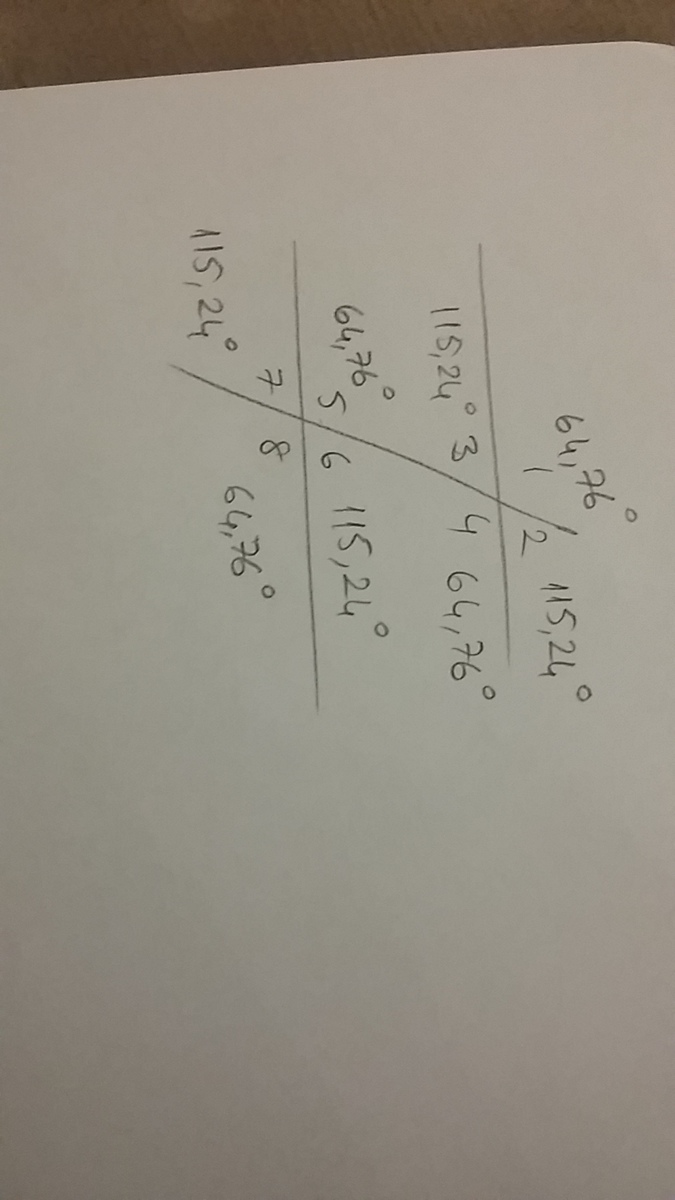 64,76°
1 2 115,24°
115,24° 3 4 64,76°
64,76° 5 6 115,24°
115,24° 7 8 64,76°